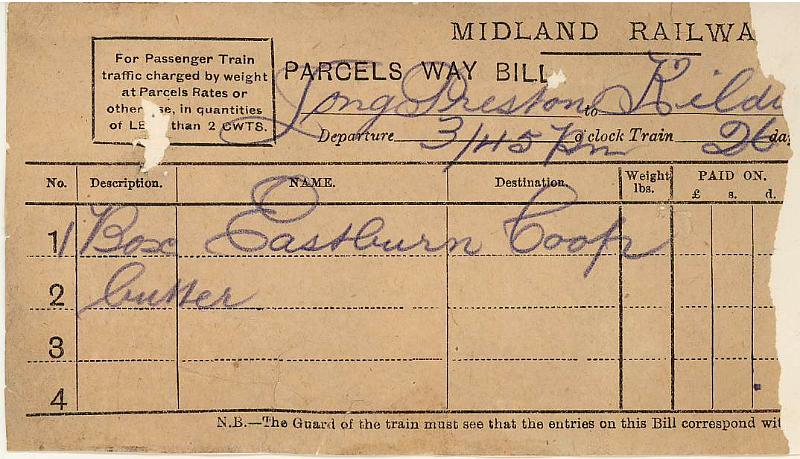 MIDLAND RAILWA
For Passenger Train
traffic charged by weight
at Parcels Rates or
in quantities
of than 2 CWTS.
PARCELS WAY BILL
Long Preston to Kild
Departure 3/45 pm o'clock Train 26 da
No. Description. NAME. Destination. Weight lbs. PAID ON.
£ s. d.
1 1 Box Eastburn Coop
2 butter
3
4
N.B.—The Guard of the train must see that the entries on this Bill correspond wit